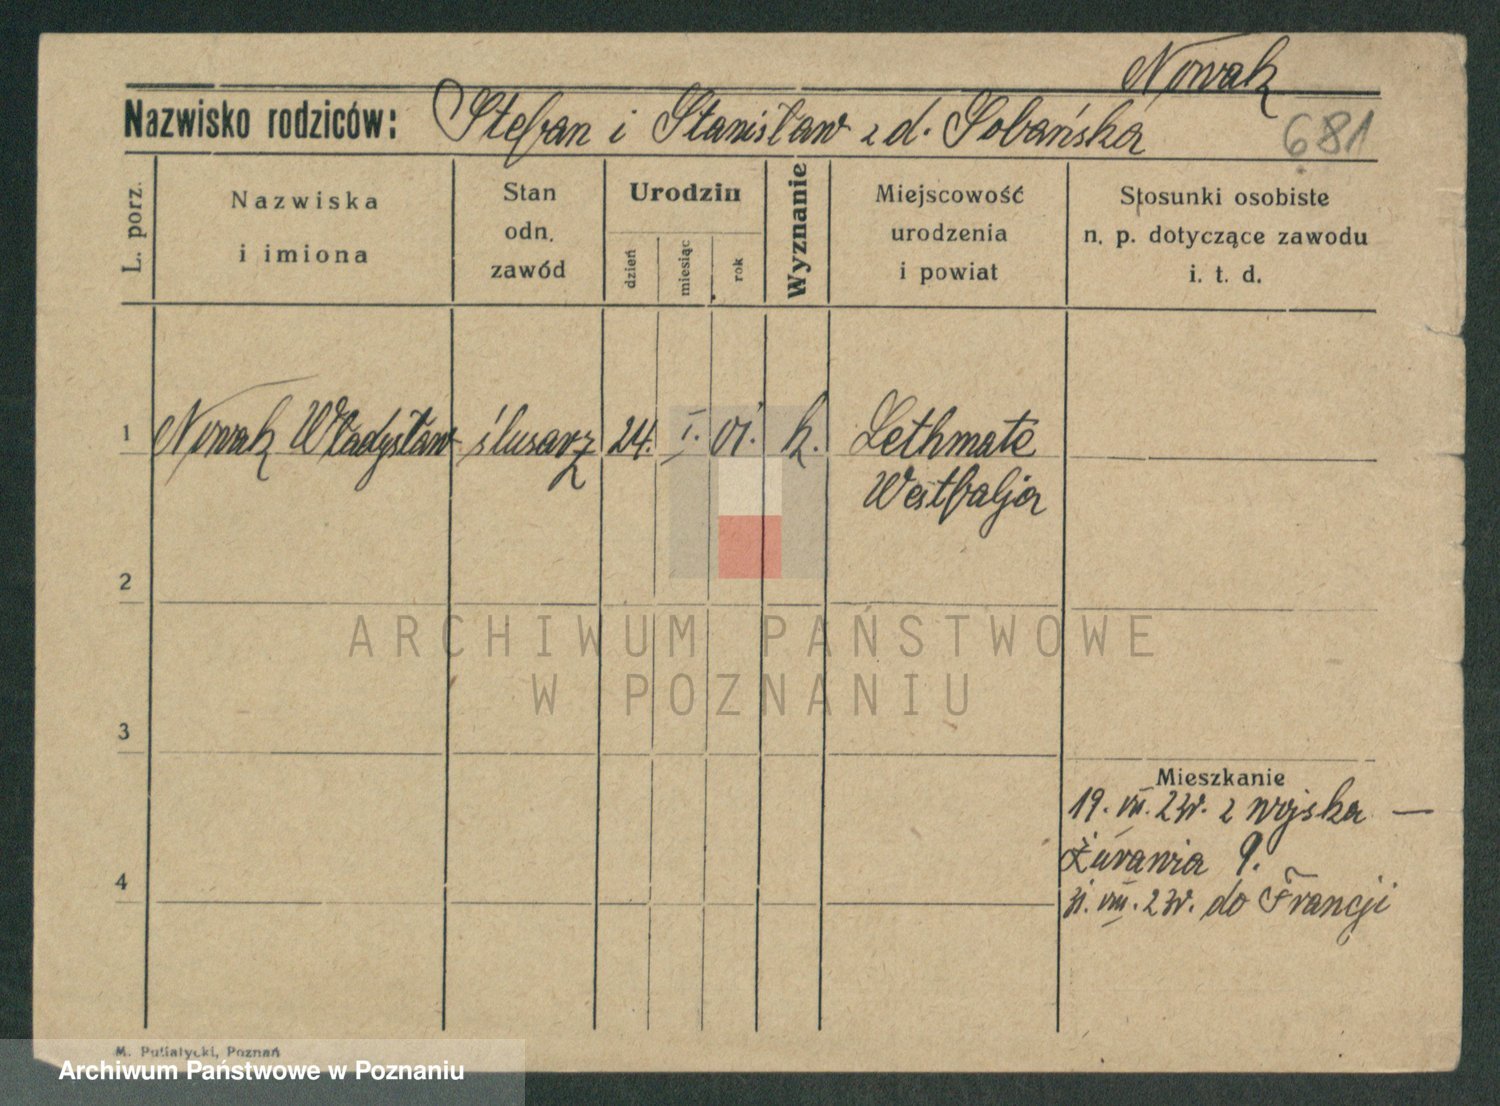 Nowak
Nazwisko rodziców: Stefan i Stanisław z d. Sobańska
681
L. porz.
Nazwiska i imiona
Stan odn. zawód
Urodzin
dzień
miesiąc
rok
Wyznanie
Miejscowość urodzenia i powiat
Stosunki osobiste n. p. dotyczące zawodu i. t. d.
1 Nowak Władysław ślusarz 24. I. 01. k. Lethmate
Westfalja
2
ARCHIWUM PAŃSTWOWE
W POZNANIU
3
Mieszkanie
19. VII. 23r. z wojska —
Żurawia 9.
4
31. VIII. 23r. do Francji
M. Putiatycki, Poznań
Archiwum Państwowe w Poznaniu